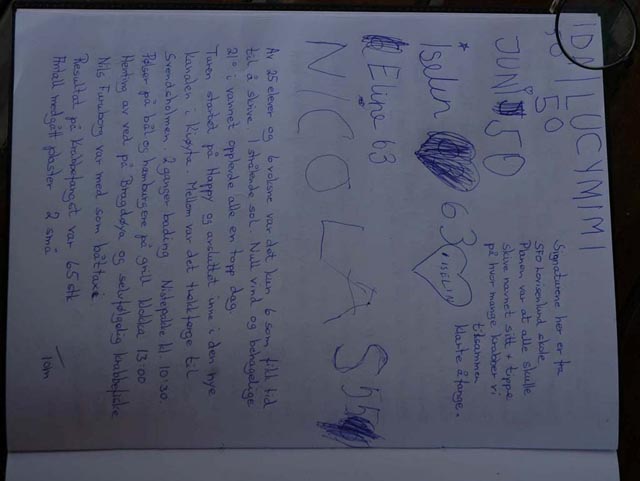 IDA LUCYMIMI
50 50
Signaturene her er fra
SFO Lovisenlund skole
Planen var at alle skulle
skive navnet sitt + tippe
på hvor mange krabber vi
tilsammen
klarte å fange.
JUNI 50
Iselin 63
ISELIN
Eline 63
NICOLAS 55
Av 25 elever og 6 voksne var det kun 6 som fikk tid
til å skive. I strålende sol. Null vind og behagelige
21° i vannet opplevde alle en topp dag.
Turen startet på Happy og avsluttet inne i den nye
Kanalen i Kjøyta. Mellom var det trekkferge til
Svendsholmen. 2 ganger bading. Nistepakke kl. 10:30.
Pølser på bål og hamburgere på grill klokka 13:00
Henting av ved på Bragdøya og selvfølgelig krabbefiske
Nils Funeborg var med som båttaxi
Resultat på krabbefanget var 65 stk
Antall medgått plaster 2 små
Tom